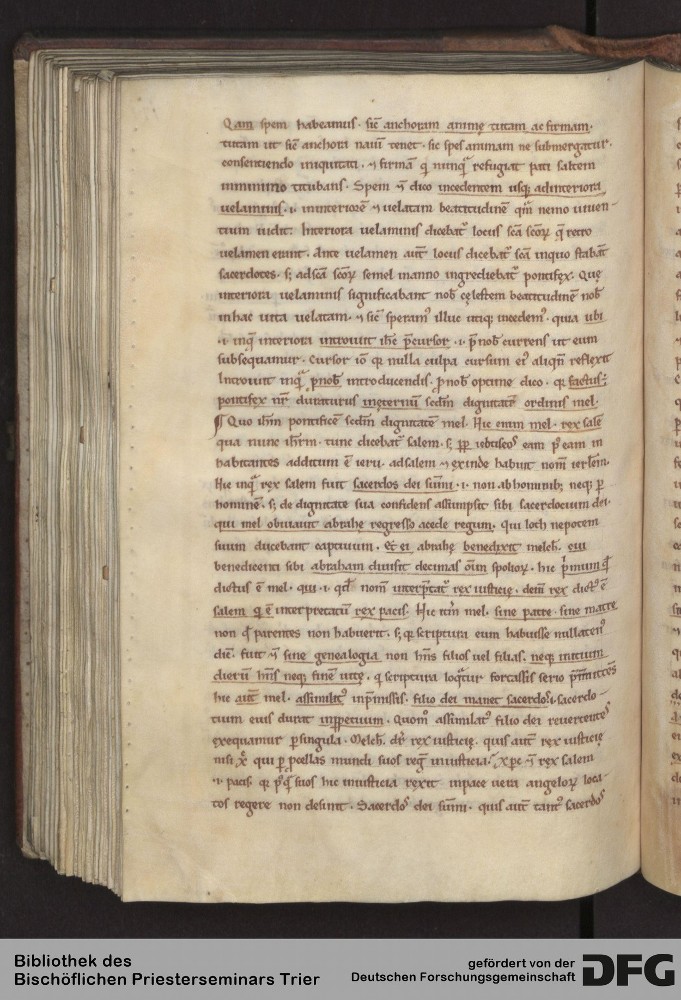 Qam spem habeamus · sic̄ anchoram animę tutam ac firmam ·
tutam ut sic̄ anchora nauī tenet · sic spes animam ne submergatur ·
consentiendo iniquitati · ⁊ firmā q̄ nunqͣ refugiat pati saltem
inminimo titubans · Spem ⁊̄ dico incedentem usq; adinteriora
uelaminis · i · ininteriorē ⁊ uelatam beatitudinē qͫ nemo uiuen-
tium uidit: Interiora uelaminis dicebatᷣ locus sc̄a sc̄oꝝ q̄ retro
uelamen erant · Ante uelamen aut̄ locus dicebatᷣ sc̄a inquo stabāt
sacerdotes · s; adsc̄a sc̄oꝝ semel inanno ingrediebatᷣ pontifex · Quę
interiora uelaminis significabant nob̄ cęlestem beatitudinē nob̄
inhac uita uelatam · ⁊ sic̄ speramꝰ illuc utiq; incedemꝰ · quia ubi
· i · inqͣ interiora introiuit ih̄c p̄cursor · i · p̄ nob̄ currens ut eum
subsequamur · Cursor iō qꝛ nulla culpa cursum eiꝰ aliqn̄ reflexit
Introiuit inqͣ p̄nob̄ introducendis · p̄nob̄ optime dico · qꝛ factus ·
pontifex nr̄ duraturus inęternū scd̄m dignitatē ordinis mel ·
¶ Quo ih̄m pontificē scd̄m dignitatē mel · Hic enim mel · rex salē
qua nunc ih̄rm̄ · tunc dicebatᷣ salem · s; ꝓꝑ iebuseoˢ eam pꝰ eam in
habitantes additum ē ieru · adsalem ⁊ exinde habuit nom̄ ierl̄em ·
Hic inqͣ rex salem fuit sacerdos dei sūmi · i · non ab hominib; neq; ꝑ
hominē · s; de dignitate sua confidens assumpsit sibi sacerdotium dei ·
qui mel obuiauit abrahę regresso acede regum · qui loth nepotem
suum ducebant captiuum · Et ei abrahę benedixit melch̄ · cui
benedicenti sibi abraham diuisit decimas oīm spolioꝝ · hic p̄mum q̄
dictus ē mel · qui · i · qd̄ nom̄ interp̄tatᷣ rex iusticię · dein̄ rex dictꝰ ē
salem q̄ ē interpretatū rex pacis · Hic it̄m mel · sine patre · sine matre
non q̄ parentes non habuerit · s; qꝛ scriptura eum habuisse nullatenꝰ
dic̄ · fuit ⁊̄ sine genealogia non hn̄s filios uel filias · neq; initium
dierū hn̄s neq; finē uitę · q̄ scriptura loqᷣtur
hic aut̄ mel · assimilatꝰ inp̄missis · filio dei manet sacerdoˢ · i · sacerdo-
tium eius durat inꝑpetuum · Quom̄ assimilatꝰ filio dei reuertentes
exequamur ꝑsingula · Melch̄ · dr̄ rex iusticię · quis aut̄ rex iusticię
nisi xp̄c qui ꝑ pcellas mundi suos reg̅ iniusticia · xp̄c ⁊̄ rex salem
· i · pacis · qꝛ pꝰqͣ suos hic iniusticia rexit inpace uera angeloꝝ loca-
tos regere non desinit · Sacerdoˢ dei sūmi · quis aut̄ tantꝰ sacerdoˢ
Bibliothek des
Bischöflichen Priesterseminars Trier
gefördert von der
Deutschen Forschungsgemeinschaft
DFG